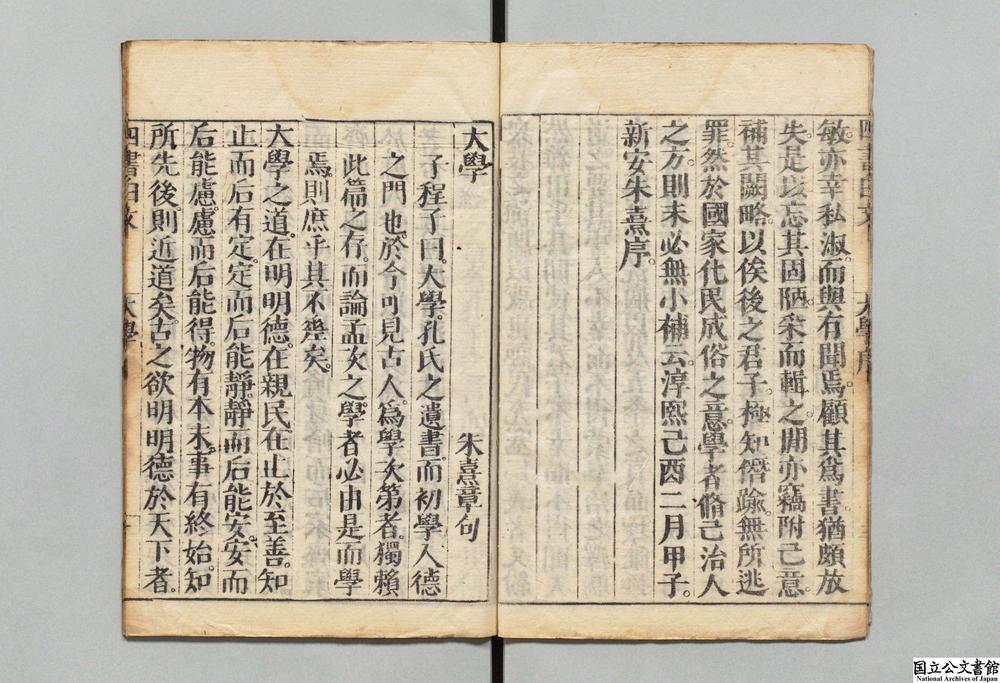 敏亦幸私淑而與有聞焉顧其爲書猶頗放
失是以忘其固陋采而輯之間亦竊附己意
補其闕略以俟後之君子極知僭踰無所逃
罪然於國家化民成俗之意學者脩己治人
之方則未必無小補云淳熙己酉二月甲子
新安朱熹序
大學序
大學
朱熹章句
子程子曰大學孔氏之遺書而初學入德
之門也於今可見古人爲學次第者獨賴
此篇之存而論孟次之學者必由是而學
焉則庶乎其不差矣
大學之道在明明德在親民在止於至善知
止而后有定定而后能靜靜而后能安安而
后能慮慮而后能得物有本末事有終始知
所先後則近道矣古之欲明明德於天下者
四書白文
大學
国立公文書館
National Archives of Japan